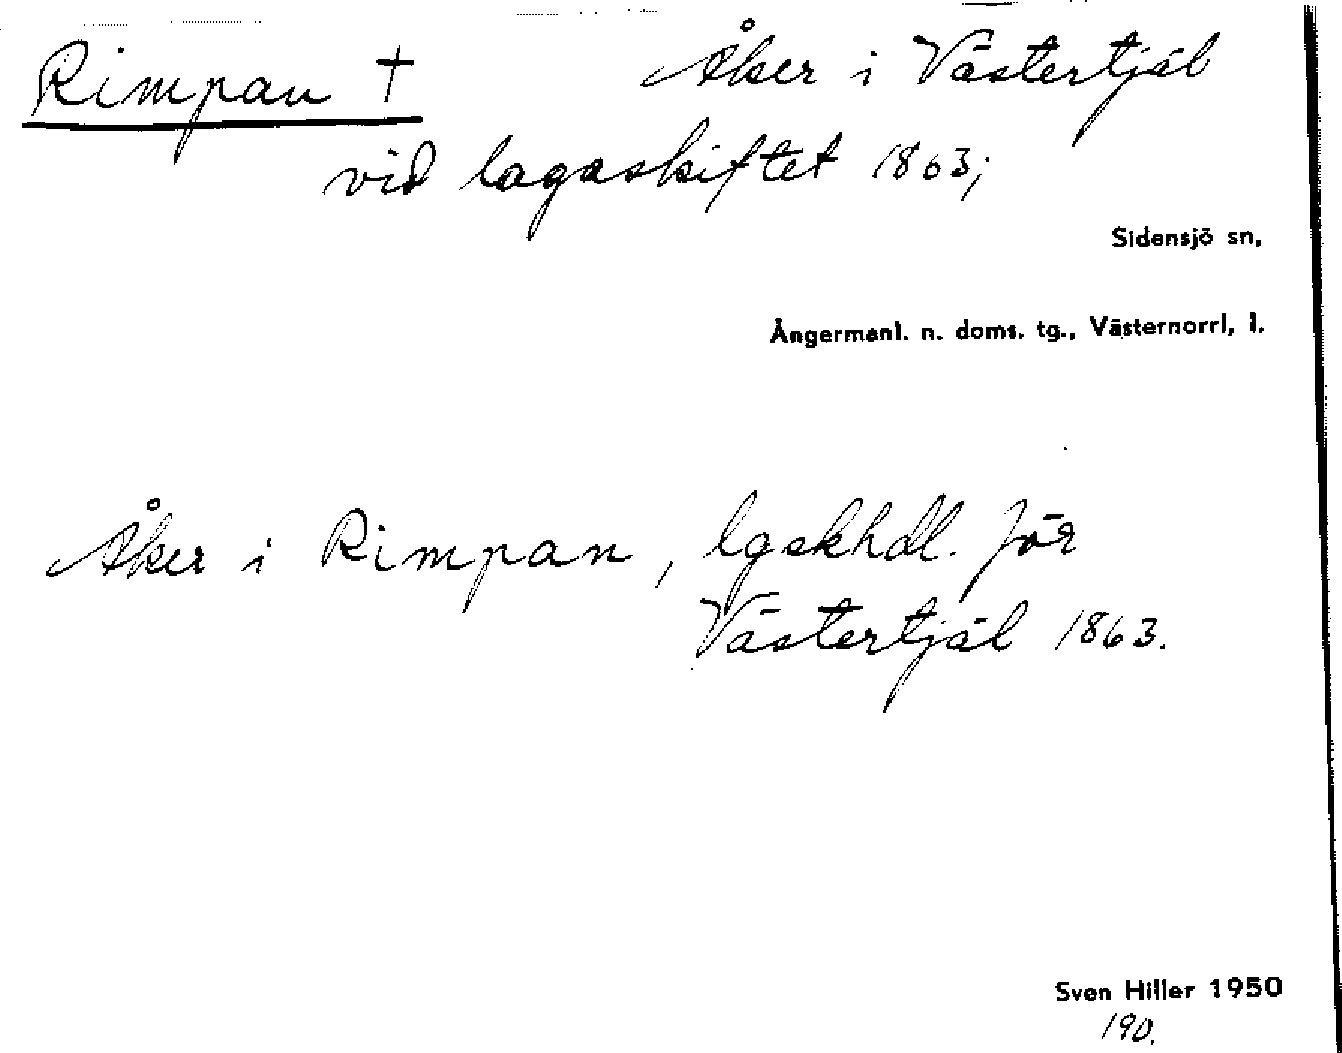 Rimpan † Åker i Västertjäl
vid lagaskiftet 1863;
Sidensjö sn,
Ångermanl. n. doms. tg., Västernorrl, l.
Åker i Rimpan, lgskhdl. för
Västertjäl 1863.
Sven Hiller 1950
190.